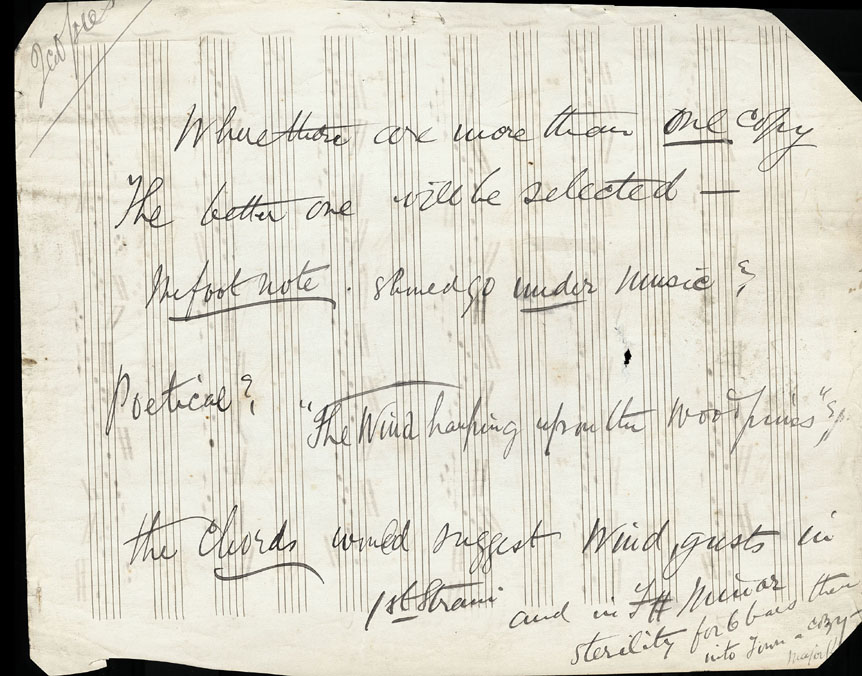 Where there are more than one copy
The better one will be selected —
The foot note . should go under music ?
Poetical ? "The Wind harping upon the wood pines" ?
the chords would suggest Wind gusts in
1st Strain and in F# Minor
sterility for 6 bars then
into